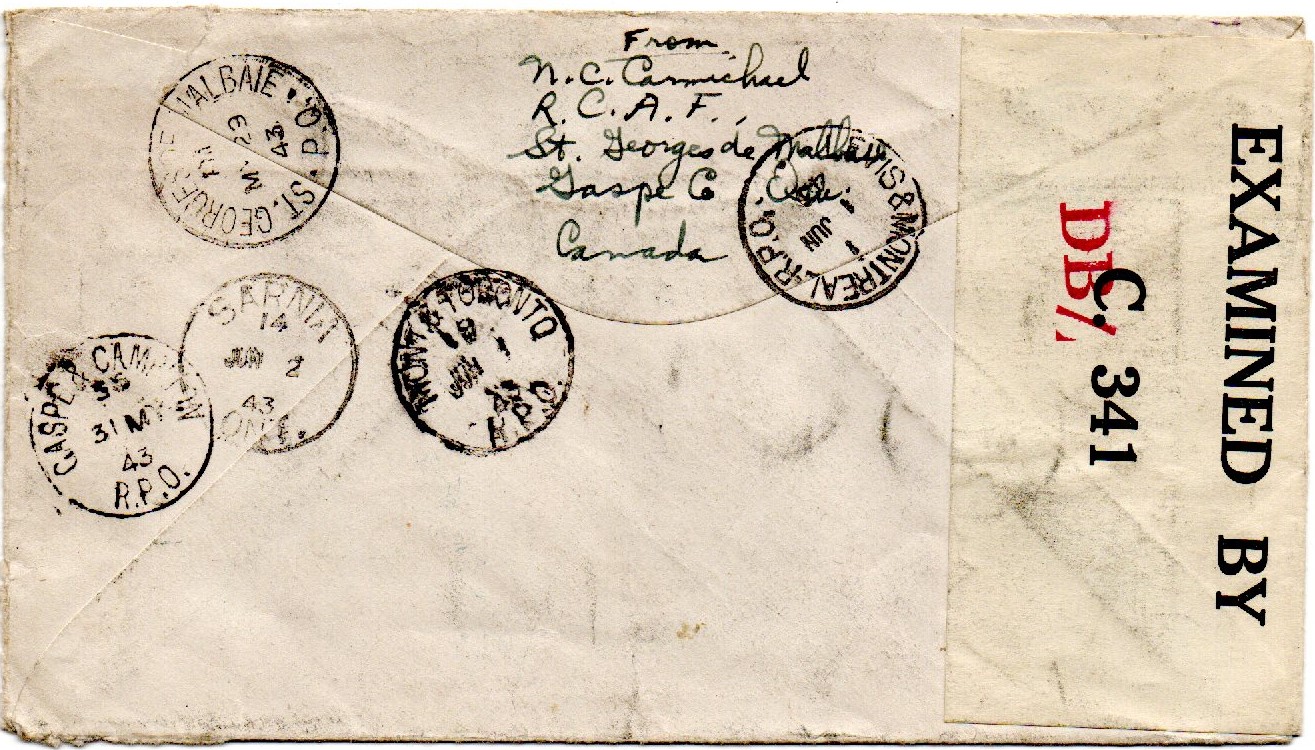 From
N. C. Carmichael
R. C. A. F.,
St. Georges de Malbaie
Gaspe C Que.
Canada
ST. GEORGES DE MALBAIE
S. P. O.
M 29
43
LEVIS & MONTREAL R.P.O.
JUN
1
SARNIA
14
JUN 2
43
ONT.
MONT. & TORONTO
R.P.O.
JUN
1
GASPE & CAMPBELLTON
31 MY
43
R.P.O.
EXAMINED BY
DB/
C. 341